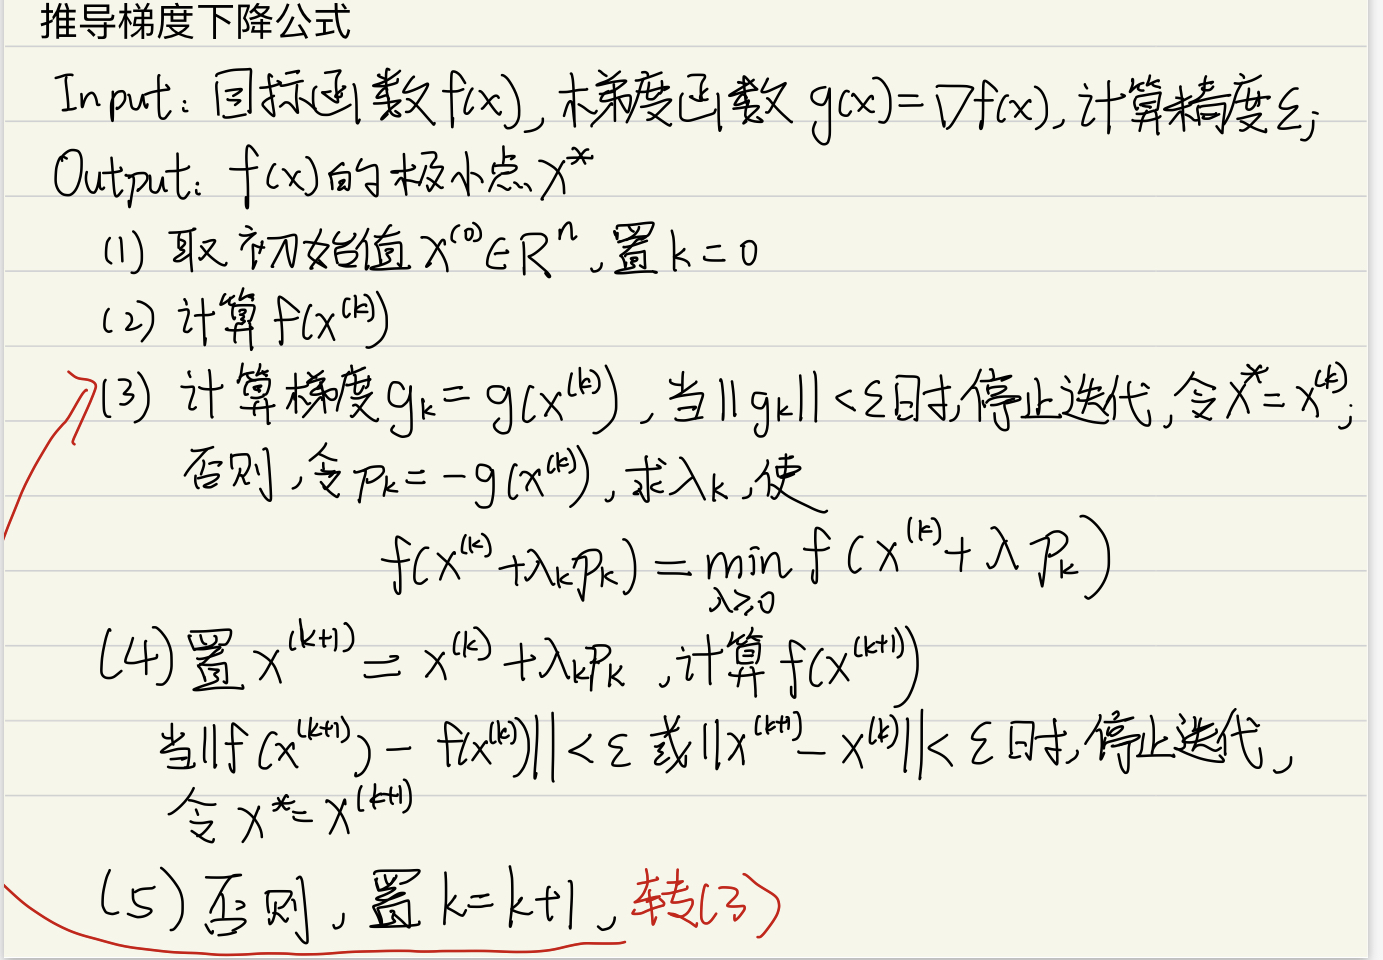 推导梯度下降公式
Input: 目标函数f(x), 梯度函数 g(x)=∇f(x), 计算精度ε;
Output: f(x)的极小点x*
(1) 取初始值 x⁽⁰⁾∈Rⁿ, 置k=0
(2) 计算f(x⁽ᵏ⁾)
(3) 计算梯度gₖ=g(x⁽ᵏ⁾), 当||gₖ||<ε时,停止迭代,令x*=x⁽ᵏ⁾;
否则,令pₖ=-g(x⁽ᵏ⁾), 求λₖ,使
f(x⁽ᵏ⁾+λₖpₖ)=min f(x⁽ᵏ⁾+λpₖ)
λ≥0
(4) 置x⁽ᵏ⁺¹⁾=x⁽ᵏ⁾+λₖpₖ, 计算f(x⁽ᵏ⁺¹⁾)
当||f(x⁽ᵏ⁺¹⁾)-f(x⁽ᵏ⁾)||<ε 或||x⁽ᵏ⁺¹⁾-x⁽ᵏ⁾||<ε时,停止迭代,
令x*=x⁽ᵏ⁺¹⁾
(5) 否则, 置k=k+1, 转(3)